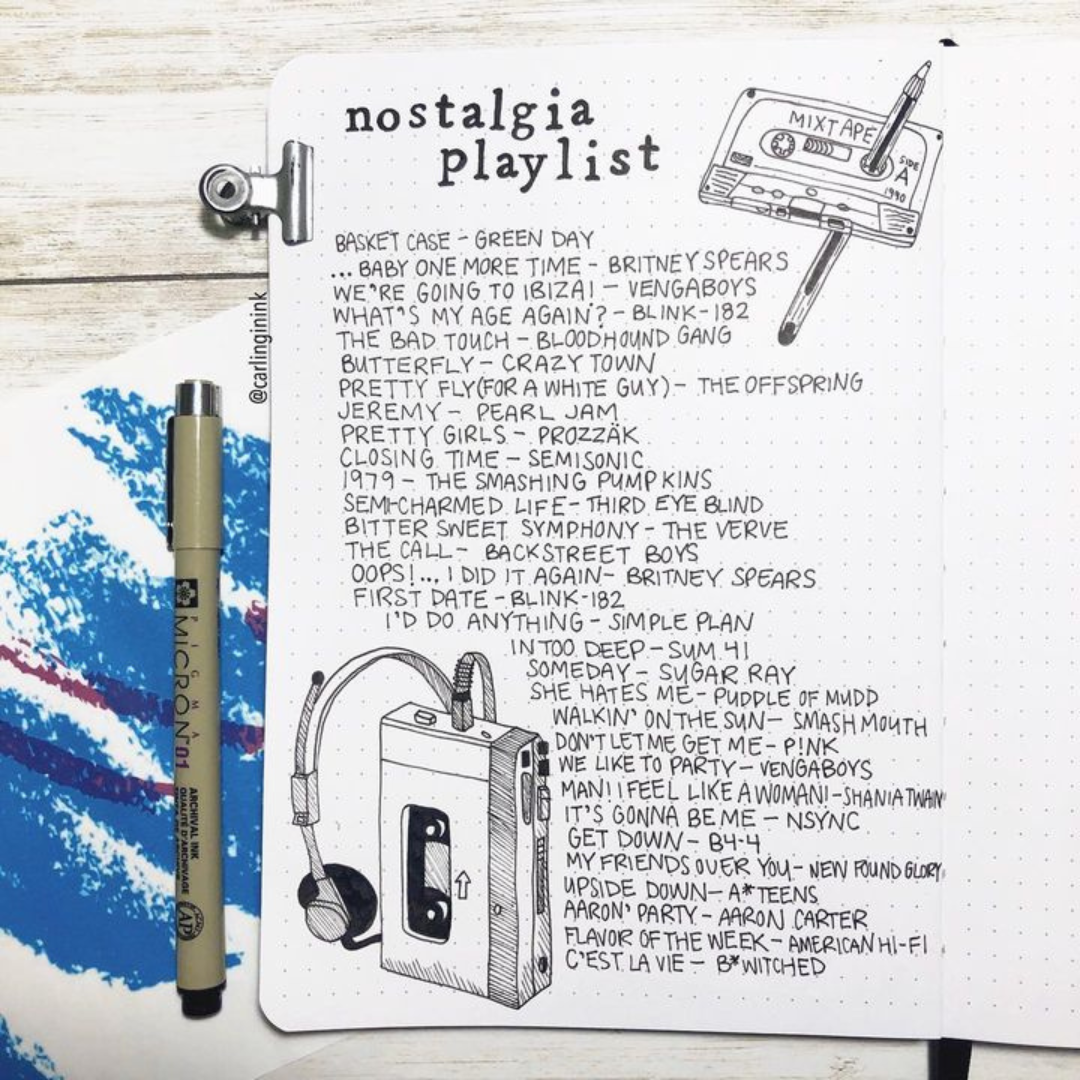 nostalgia
playlist
MIXTAPE
SIDE
A
1990
BASKET CASE - GREEN DAY
...BABY ONE MORE TIME - BRITNEY SPEARS
WE'RE GOING TO IBIZA! - VENGABOYS
WHAT'S MY AGE AGAIN? - BLINK-182
THE BAD TOUCH - BLOODHOUND GANG
BUTTERFLY - CRAZY TOWN
PRETTY FLY (FOR A WHITE GUY) - THE OFFSPRING
JEREMY - PEARL JAM
PRETTY GIRLS - PROZZÄK
CLOSING TIME - SEMISONIC
1979 - THE SMASHING PUMPKINS
SEMI-CHARMED LIFE - THIRD EYE BLIND
BITTER SWEET SYMPHONY - THE VERVE
THE CALL - BACKSTREET BOYS
OOPS!... I DID IT AGAIN - BRITNEY SPEARS
FIRST DATE - BLINK-182
I'D DO ANYTHING - SIMPLE PLAN
IN TOO DEEP - SUM 41
SOMEDAY - SUGAR RAY
SHE HATES ME - PUDDLE OF MUDD
WALKIN' ON THE SUN - SMASH MOUTH
DON'T LET ME GET ME - P!NK
WE LIKE TO PARTY - VENGABOYS
MAN! I FEEL LIKE A WOMAN! - SHANIA TWAIN
IT'S GONNA BE ME - NSYNC
GET DOWN - B4-4
MY FRIENDS OVER YOU - NEW FOUND GLORY
UPSIDE DOWN - A*TEENS
AARON' PARTY - AARON CARTER
FLAVOR OF THE WEEK - AMERICAN HI-FI
C'EST LA VIE - B*WITCHED
@carlinginink
PIGMA
MICRON™ 01
ARCHIVAL INK
QUALITÉ D'ARCHIVAGE
AP